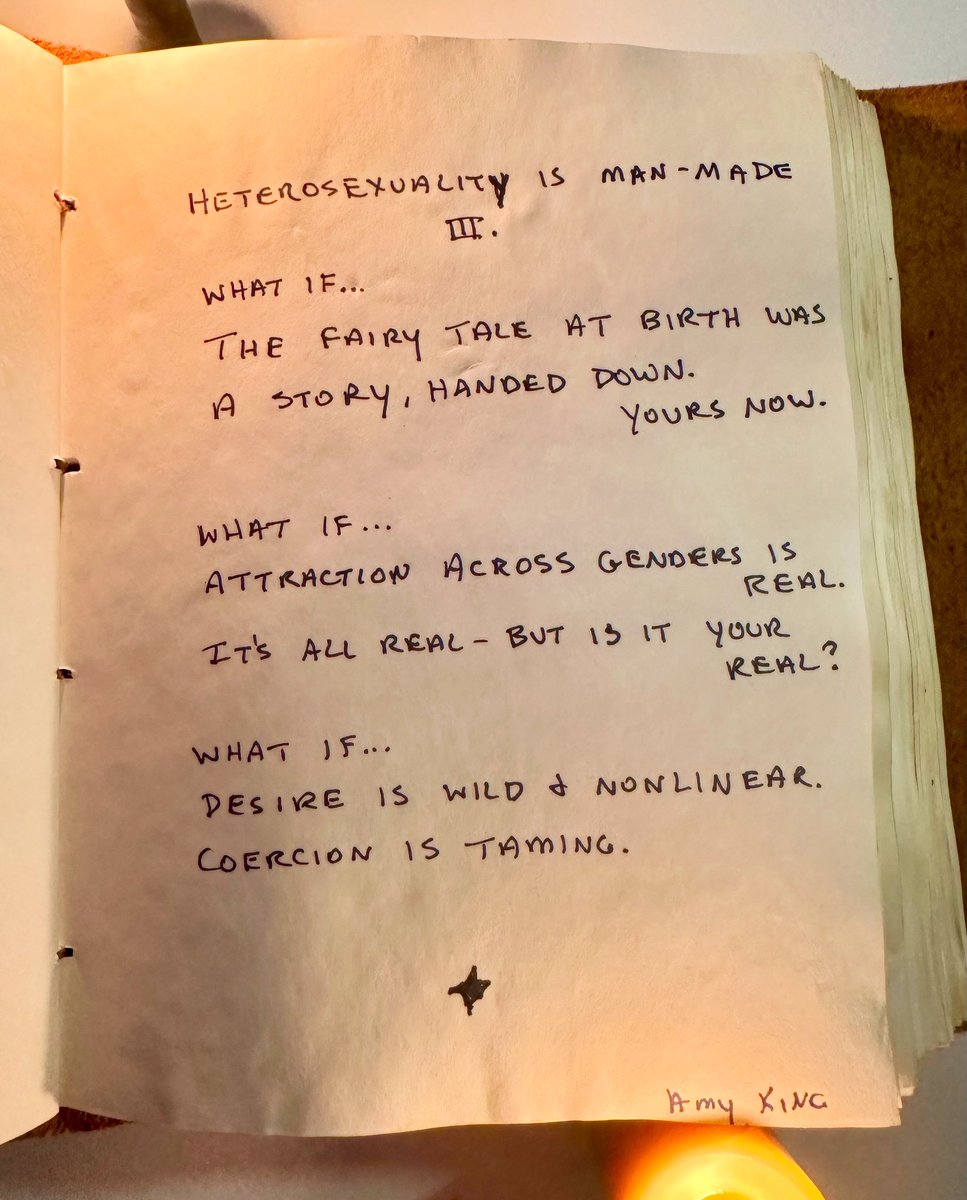 HETEROSEXUALITY IS MAN-MADE
III.
WHAT IF...
THE FAIRY TALE AT BIRTH WAS
A STORY, HANDED DOWN.
YOURS NOW.
WHAT IF...
ATTRACTION ACROSS GENDERS IS
REAL.
IT'S ALL REAL - BUT IS IT YOUR
REAL?
WHAT IF...
DESIRE IS WILD & NONLINEAR.
COERCION IS TAMING.
Amy KING